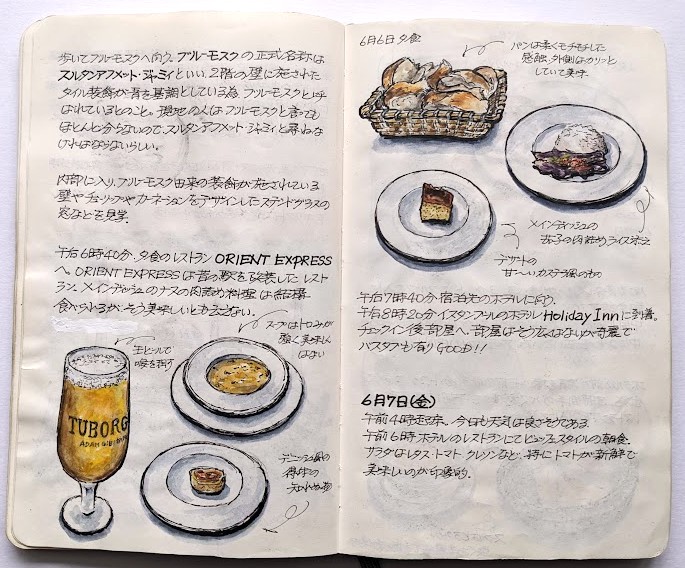 歩いてブルーモスクへ向う。ブルーモスクの正式名称は
スルタンアフメット・ジャーミィといい、2階の壁に施された
タイル装飾が青を基調としている為、ブルーモスクと呼
ばれているとのこと。現地の人はブルーモスクと言っても
ほとんど分らないので、スルタンアフメット・ジャーミィと尋ねな
ければならないらしい。
内部に入り、ブルーモスク由来の装飾が施されている
壁やチューリップやカーネーションをデザインしたステンドグラスの
窓などを見学。
午后6時40分、夕食のレストラン ORIENT EXPRESS
へ。ORIENT EXPRESSは昔の駅を改装したレスト
ラン。メインディッシュのナスの肉詰め料理は結構
食べられるが、そう美味しいとも言えない。
生ビールで
喉を潤す
スープはトロみが
強く美味しく
はない
TUBORG
デニッシュ風の
得体の
知れぬ物
6月6日 夕食
パンは柔くモチモチした
感触、外側はカリッと
していて美味
メインディッシュの
茄子の肉詰めライス添え
デザートの
甘〜いカステラ風のもの
午后7時40分 宿泊先のホテルに向う。
午后8時20分 イスタンブールのホテル Holiday Innに到着。
チェックイン後部屋へ。部屋はそう広くはないが綺麗で
バスタブも有りGOOD!!
6月7日(金)
午前4時起床。今日も天気は良さそうである
午前6時 ホテルのレストランにてビュッフェスタイルの朝食。
サラダはレタス・トマト・クレソンなど、特にトマトが新鮮で
美味しいのが印象的。